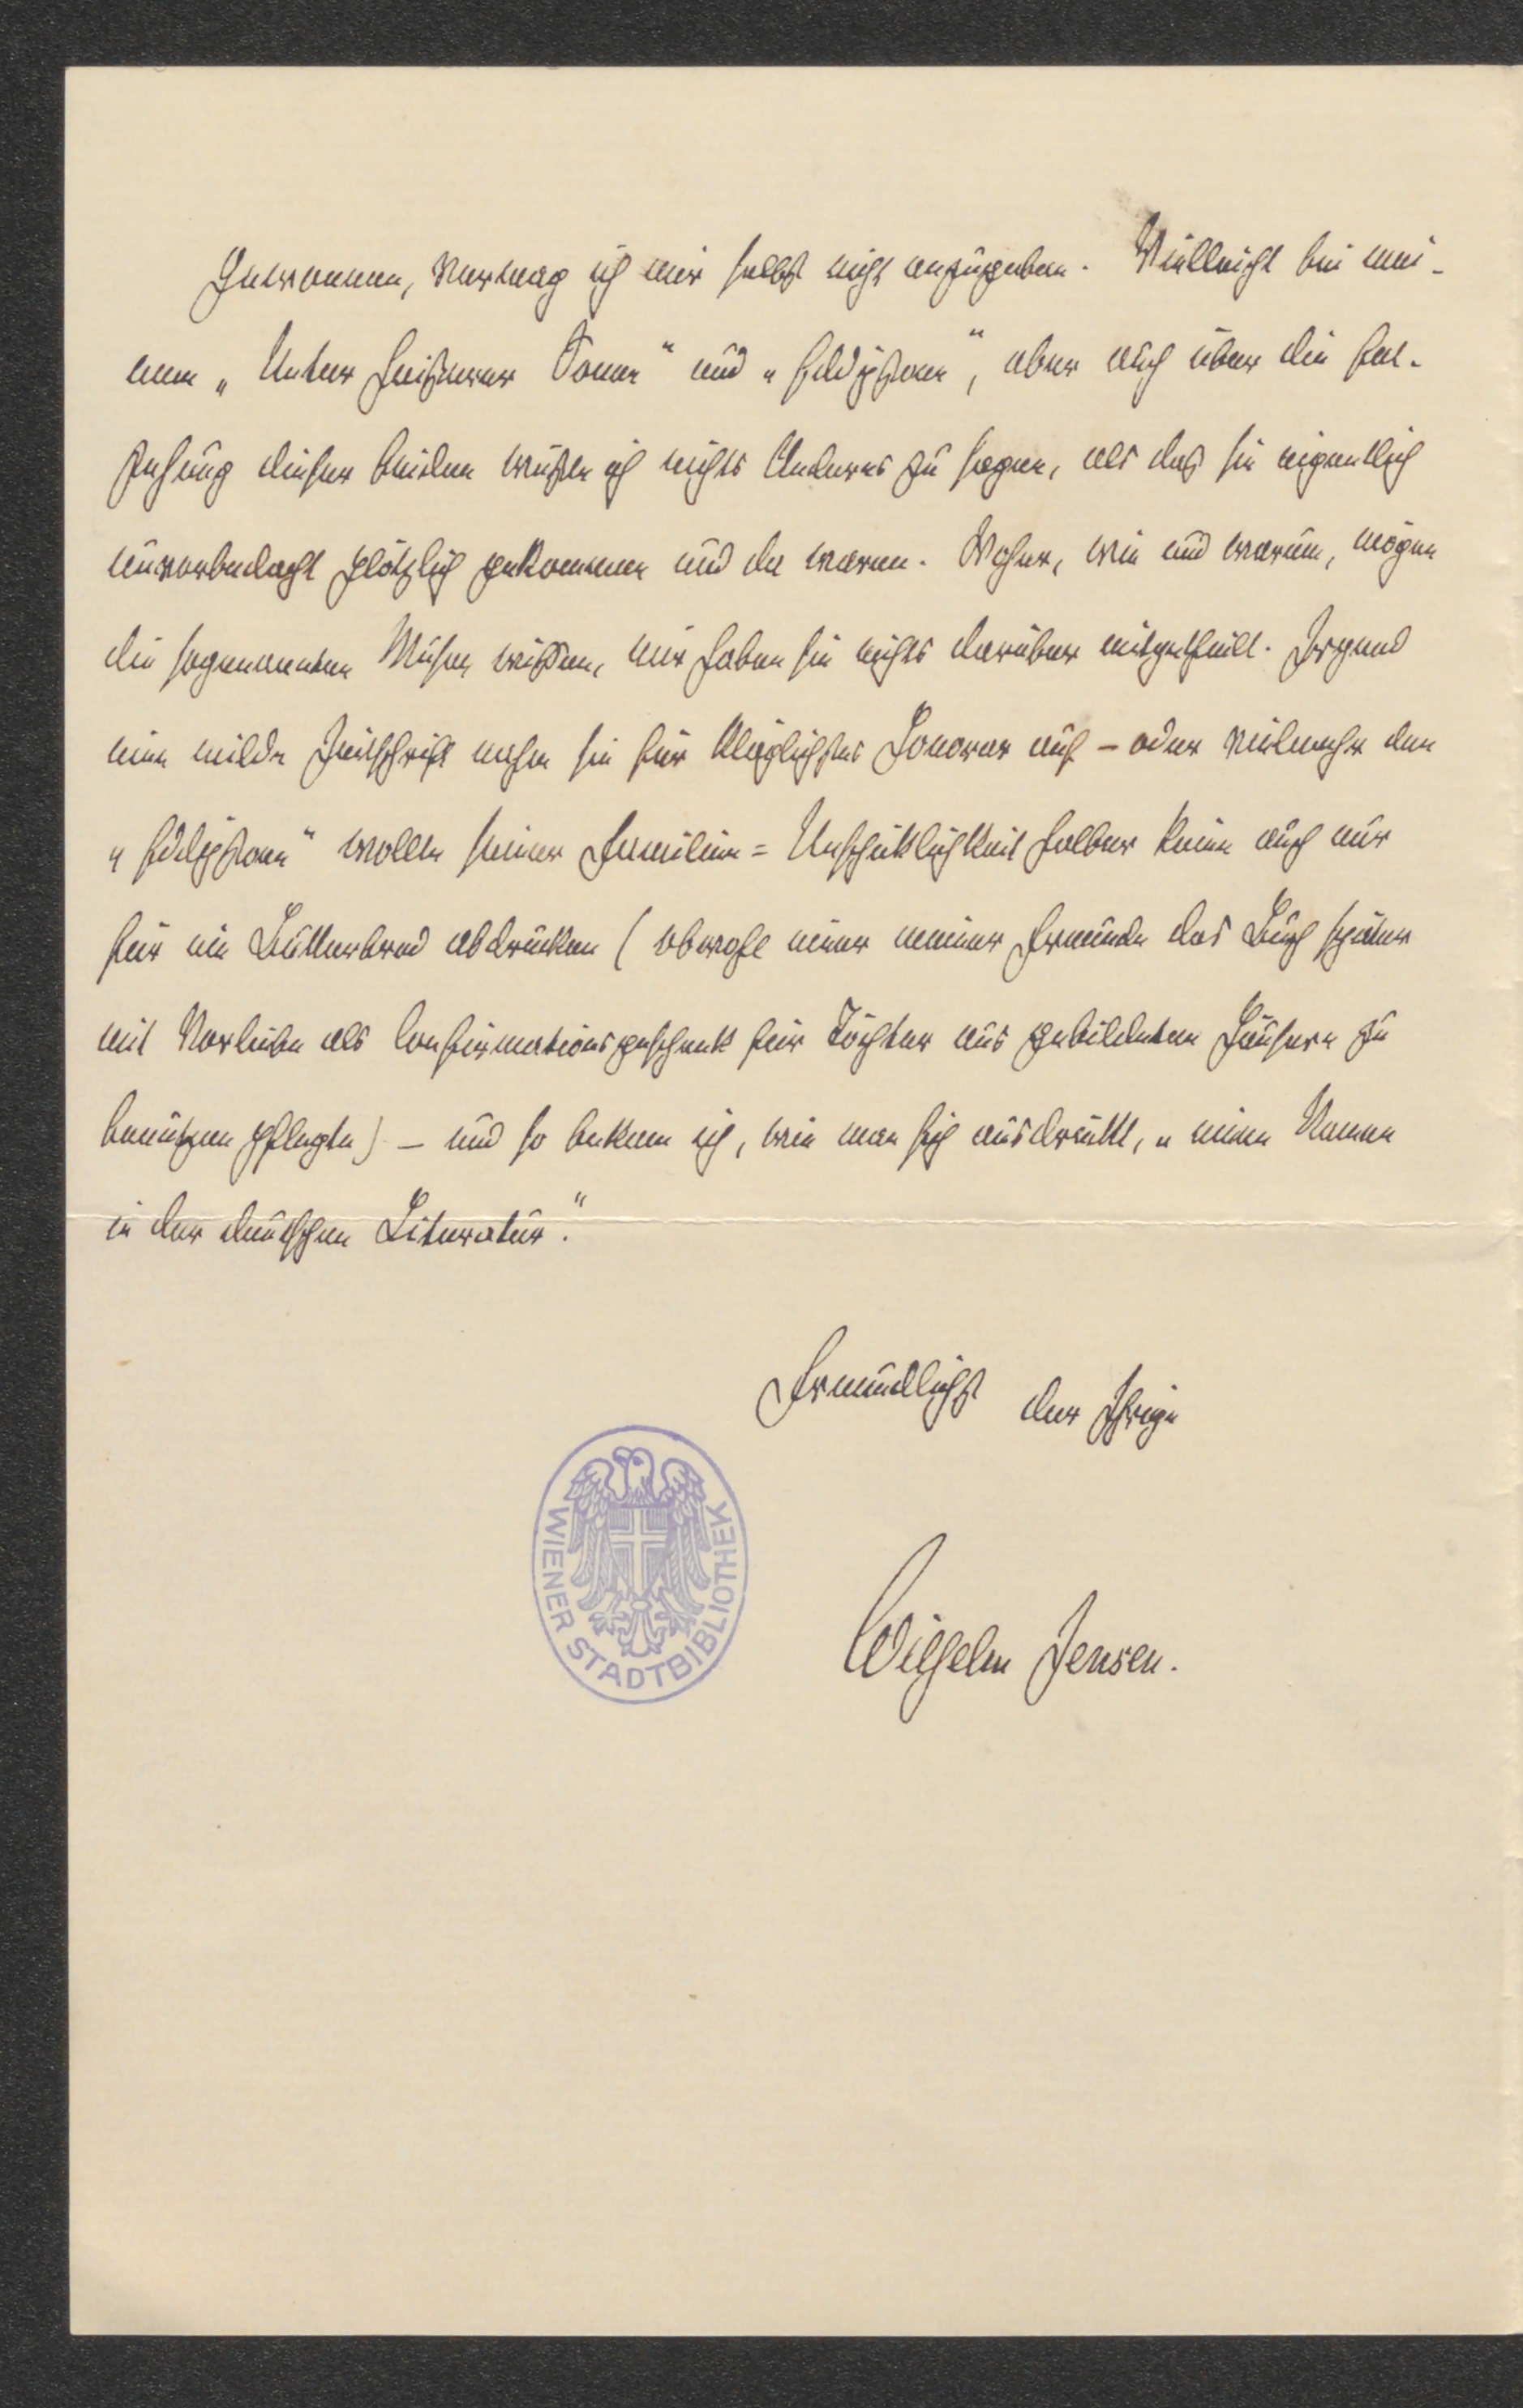 Gewonnen, vermag ich mir selbst nicht anzugeben. Vielleicht bei mei-
nen „Unter heißerer Sonne“ und „Eddystone“, aber auch über die Ent-
stehung dieser beiden wüßte ich nichts Anderes zu sagen, als daß sie eigentlich
unvorbedacht plötzlich gekommen und da waren. Woher, wie und warum, mögen
die sogenannten Musen wissen, mir haben sie nichts darüber mitgetheilt. Irgend
eine milde Zeitschrift nahm sie für kläglichstes Honorar auf – oder vielmehr den
„Eddystone“ wollte seiner Familien=Unschicklichkeit halber keine auch nur
für ein Butterbrod abdrucken (obwohl einer meiner Freunde das Buch später
mit Vorliebe als Confirmationsgeschenk für Töchter aus gebildeten Häusern zu
benützen pflegte) – und so bekam ich, wie man sich ausdrückt, „einen Namen
in der deutschen Literatur“.
Freundlichst der Ihrige
Wilhelm Jensen.
WIENER STADTBIBLIOTHEK